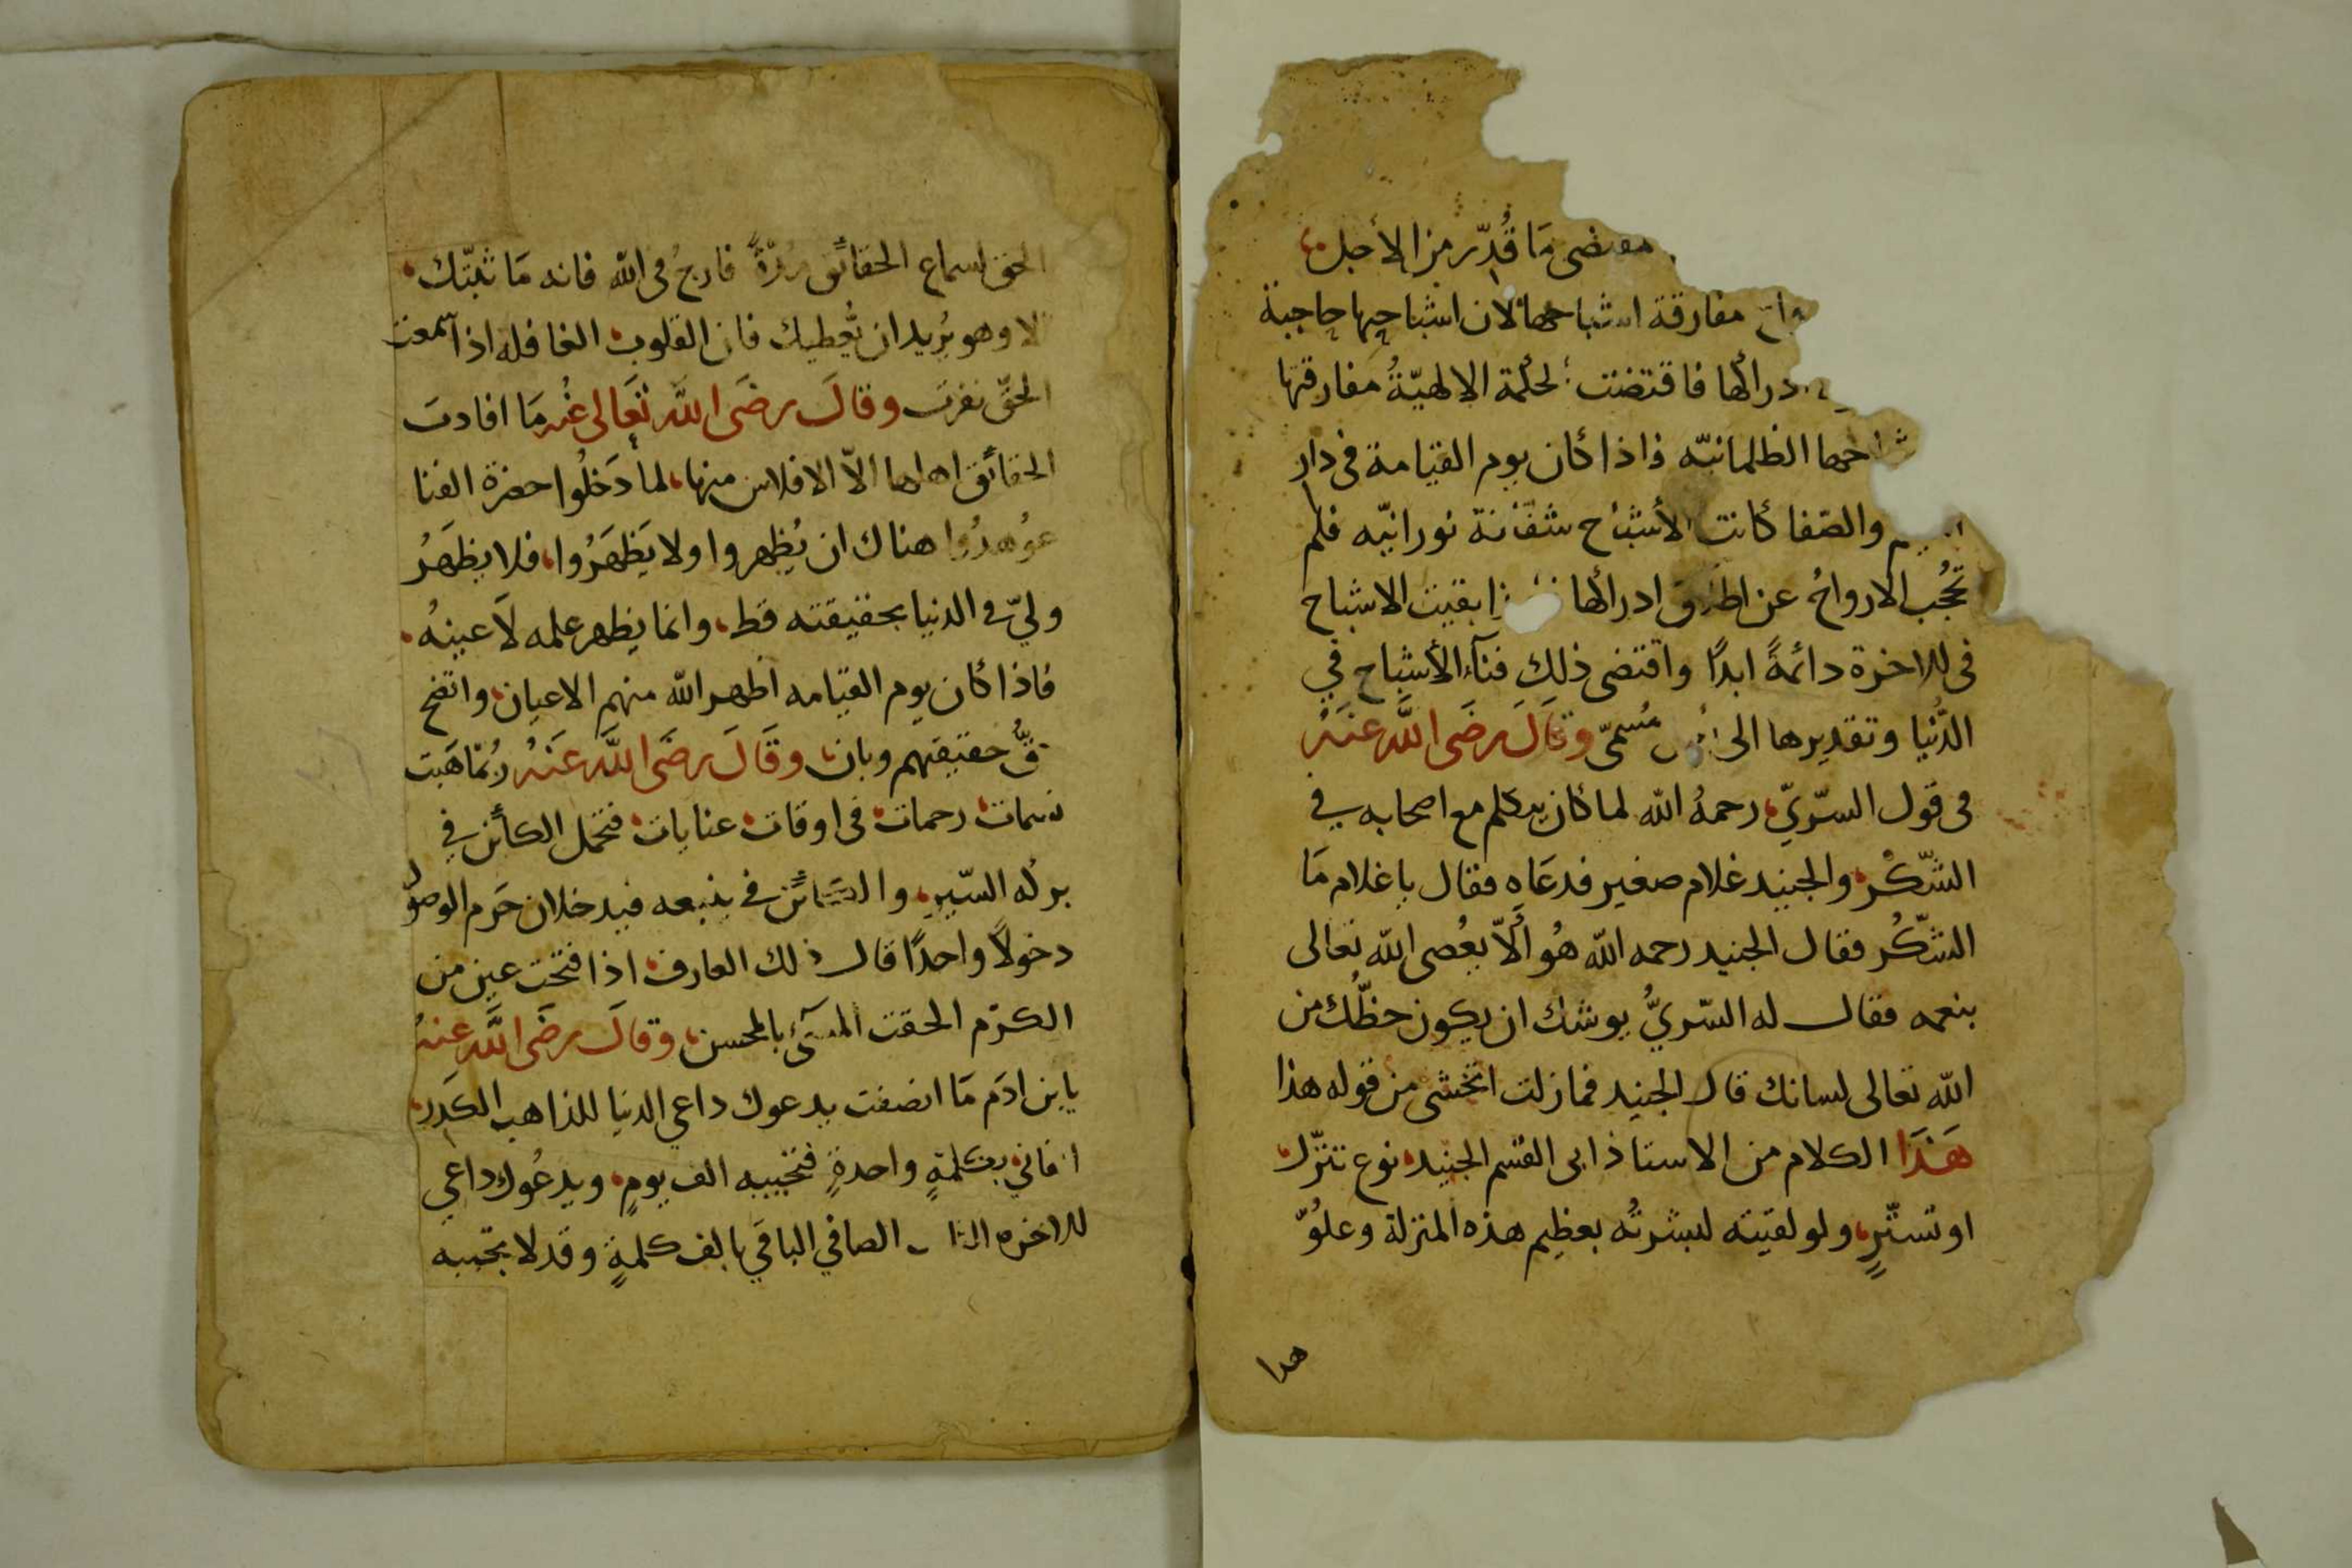 مقتضى مَا قُدِّر من الأجل
مفارقة اشباحها لان اشباحها حاجبة
دراكها فاقتضت الحكمة الالهيّةُ مفارقتها
الظلمانيّه فاذا كان يوم القيامة في دار
والصّفا كانت الأشباح شفّافة نورانيّه فلم
تحجُب الارواحُ عن ادراكها بقيت الاشباح
في الاخرة دائمةً ابدًا واقتضى ذلك فنآء الأشباح في
الدُّنيا وتقديرها الى مُسمّى وقَالَ رضَى اللَّه عَنهُ
في قول السّريّ رحمهُ الله لما كان يتكلم مع اصحابه في
الشّكْر والجنيد غلام صغير فدعَاه فقال ياغلام مَا
الشّكُر فقال الجنيد رحمه الله هُو أَلاّ يعُصى الله تعالى
بنعمه فقال له السّريُّ يوشك ان يكون حظُّك من
الله تعالى لسانك قال الجنيد فمازلت اتخشى من قوله هذا
هَذَا الكلام من الاستاذ ابى القسم الجنيد نوع تنزّل
او تستّرٍ ولو لقيته لبشرتُه بعظيم هذه المنزلة وعلوّ
هدا
الحق لسماع الحقائق فارجُ في الله فانه مَا ثبّتك
الا وهو يُريد ان يُعطيك فان القلوب الغافله اذا سمعت
الحقّ نفرت وقالَ رضَى اللَّه تعَالى عنْه مَا افادت
الحقائق اهلها الاّ الافلاس منها لما دَخلُوا حضرة الفنا
عُوهدُوا هناك ان يُظهروا ولا يَظهَرُوا فلا يظهَرُ
وليّ في الدنيا بحقيقته قط وانما يظهر علمه لاَ عينهُ
فاذا كان يوم القيامه اظهر الله منهم الاعيان واتضح
حقُّ حقيقتهم وبان وقَالَ رضَى اللَّه عَنْهُ رُبّمَا هَبت
نسمات رحمات في اوقات عنايات فتحمل الكائن في
السّير في فيدخلان حَرم الوصُول
دخولاً واحدًا قال ذلك العارف اذا فتحت عين من
الكرَم الحقت المسئ بالمحسن وقالَ رضَى اللَّه عنهُ
يابن ادَم مَا انصفت يدعوك داعي الدنيا للذاهب الكَدر
الفاني بكلمةٍ واحدةٍ فتجيبه الف يومٍ ويدعُوك داعي
للاخره الصافي الباقي بالف كلمةٍ وقد لا تجيبه